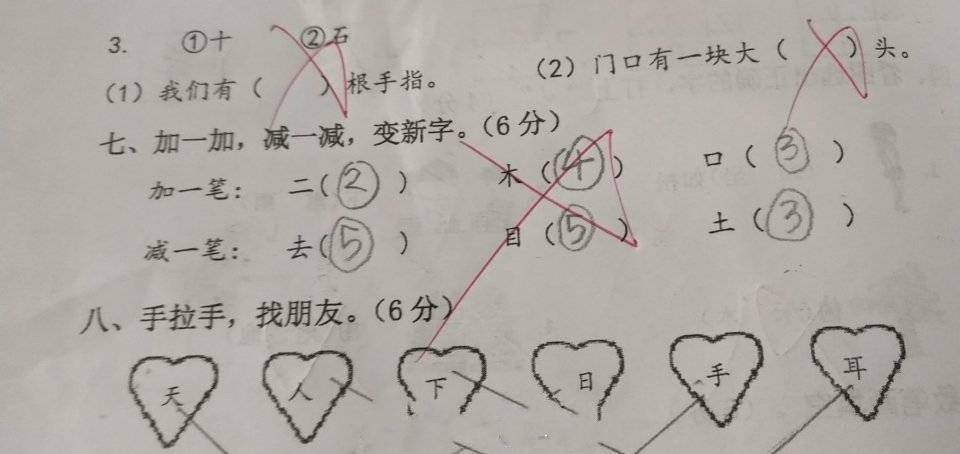 3. ①十 ②石
(1)我们有( )根手指。 (2)门口有一块大( )头。
七、加一加，减一减，变新字。(6分)
加一笔：二(②) 木(④) 口(③)
减一笔：去(⑤) 目(⑤) 土(③)
八、手拉手，找朋友。(6分)
天 人 下 日 手 耳